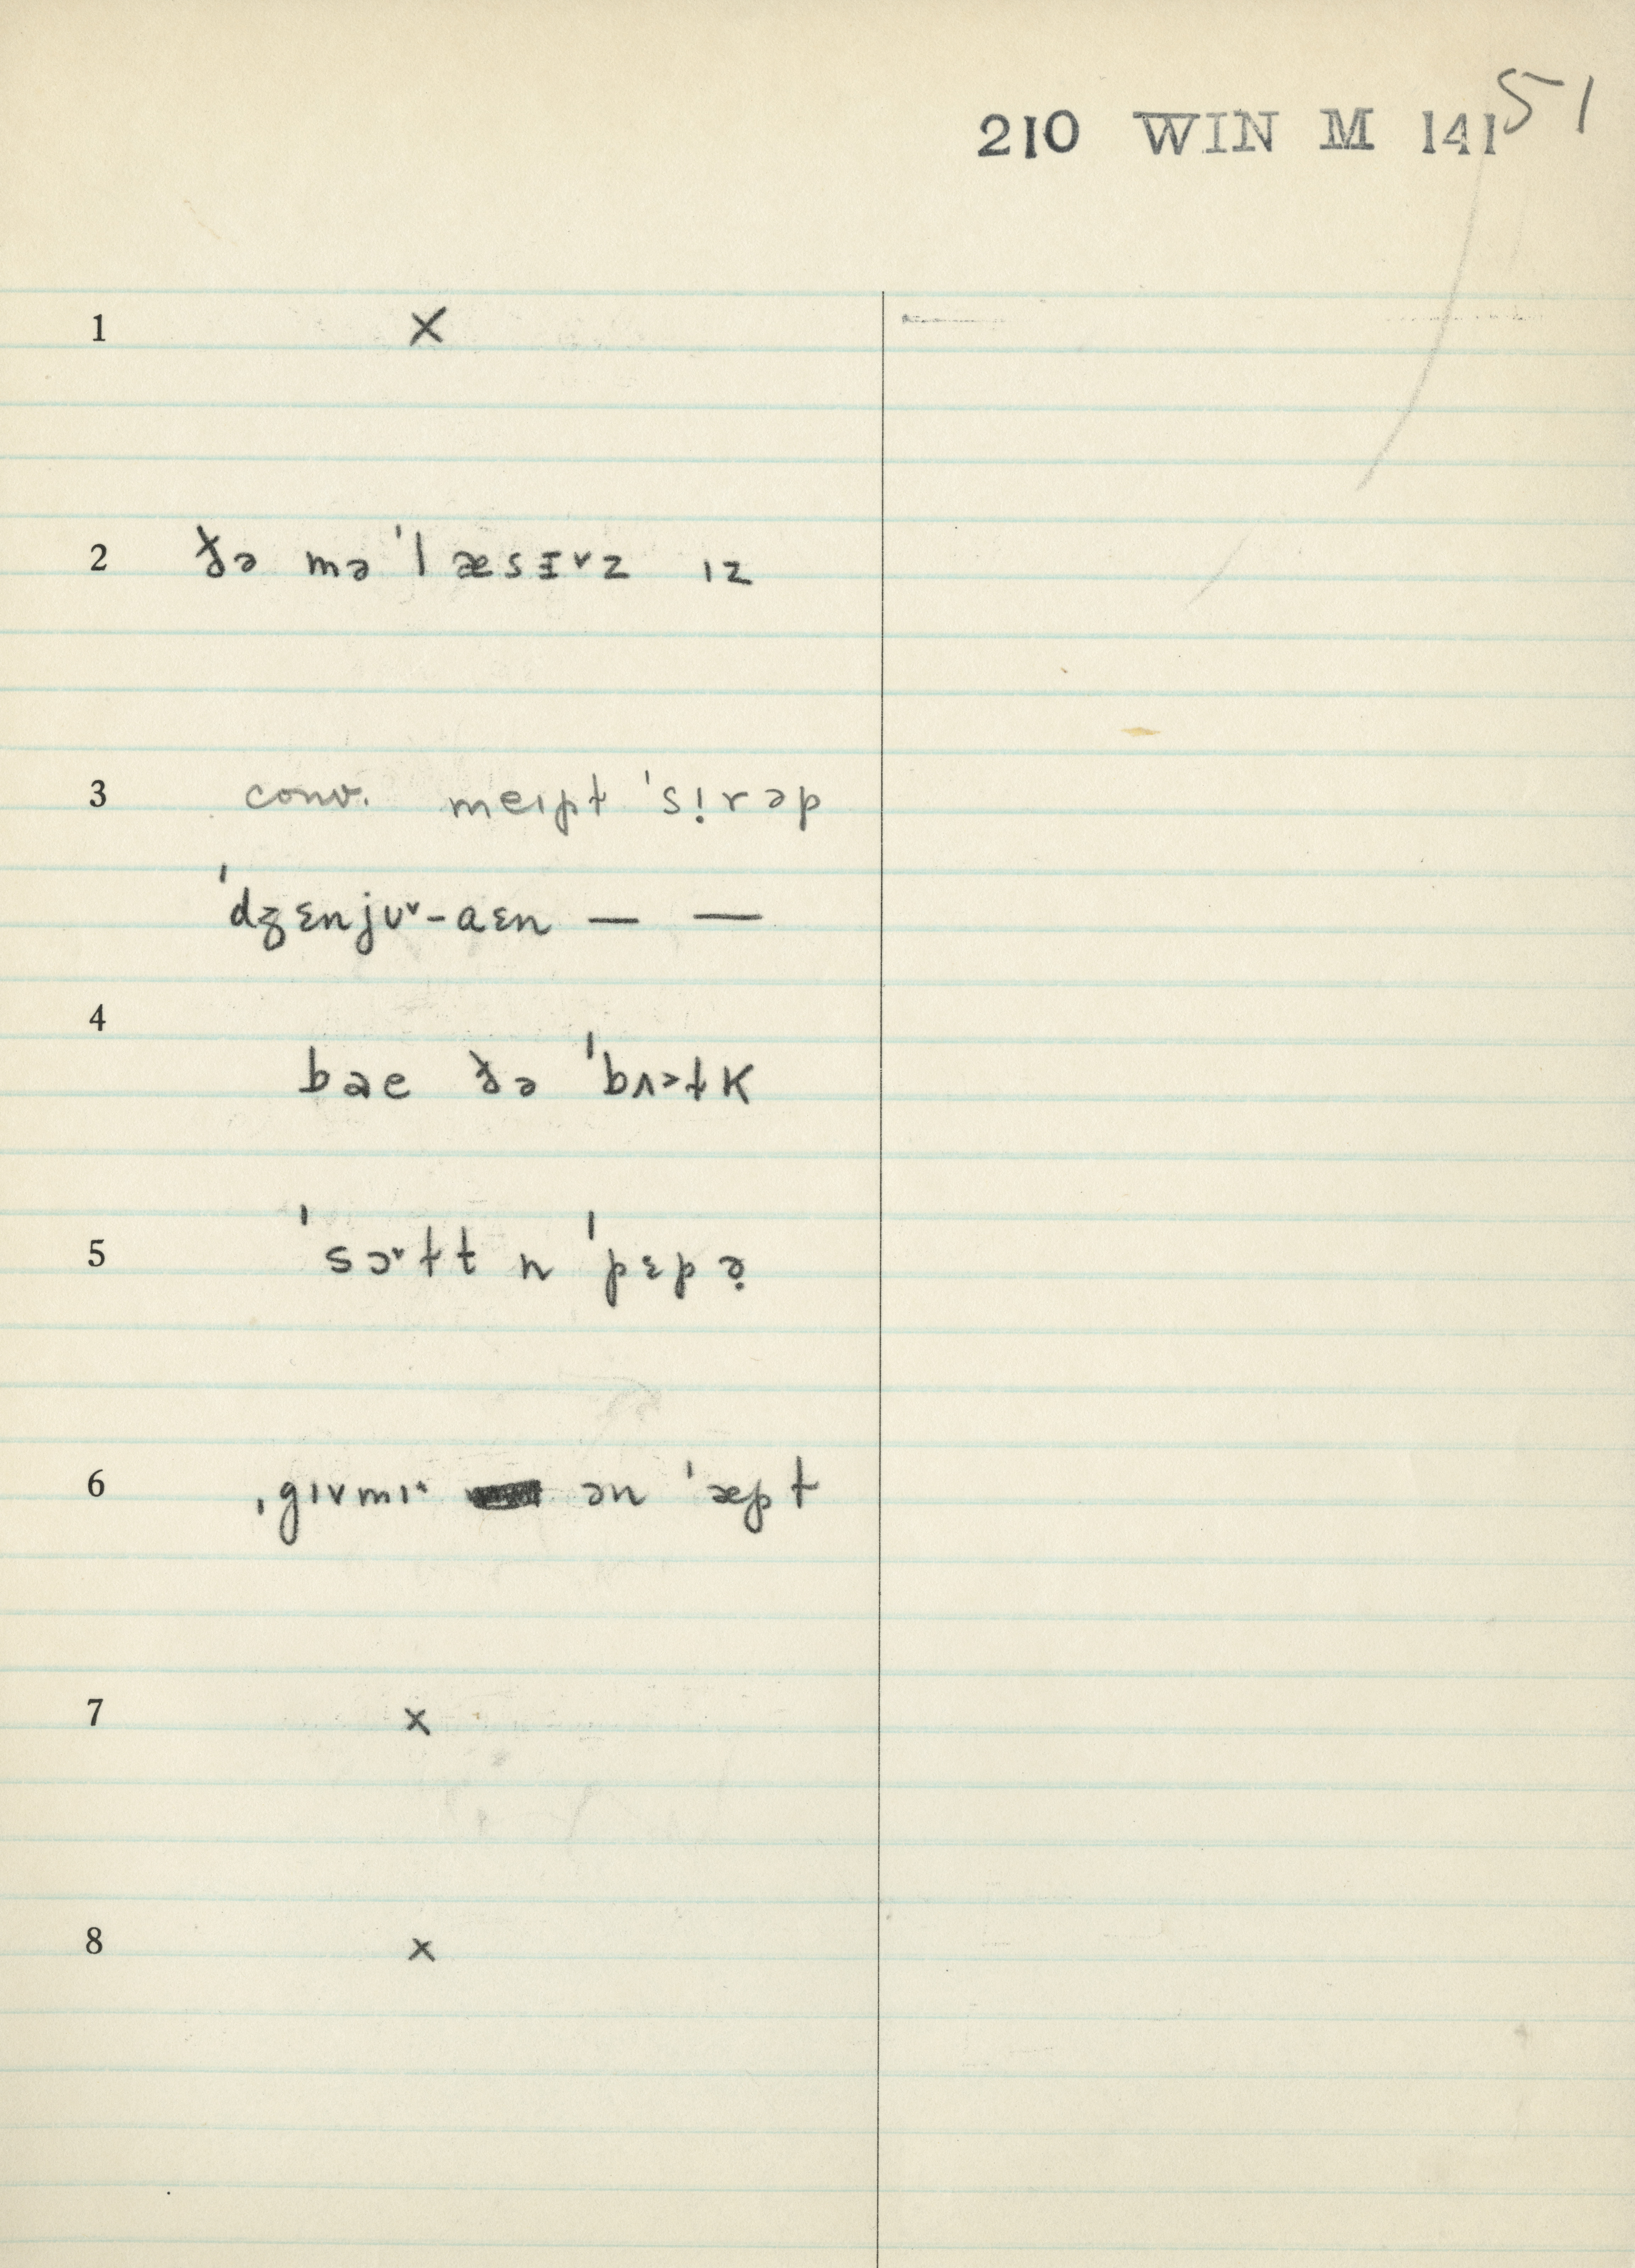 210 WIN M 141 51
1 x
2 ðə məˈlæsɪ˅z ɪz
3 conv. meɪpt ˈsị rəp
ˈdʒɛnjʊ˅-aɛn — —
4
bae ðə ˈbʌ˃tk
5 ˈsɔ˅tt n ˈpɛpə̣
6 ˌgɪvmɪ˄ ən ˈæpt
7 x
8 x